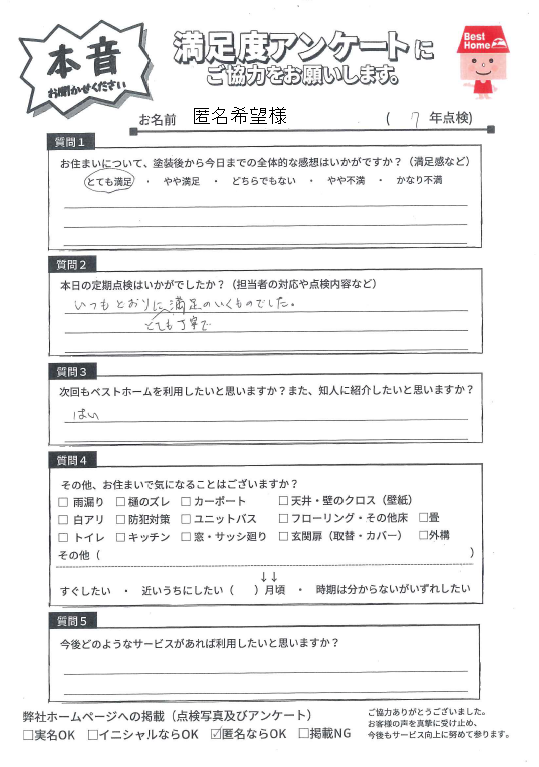 本音
お聞かせください
満足度アンケートに
ご協力をお願いします。
Best
Home
お名前 匿名希望様 ( 7 年点検)
質問1
お住まいについて、塗装後から今日までの全体的な感想はいかがですか?(満足感など)
とても満足 ・ やや満足 ・ どちらでもない ・ やや不満 ・ かなり不満
質問2
本日の定期点検はいかがでしたか?(担当者の対応や点検内容など)
いつもとおりに満足のいくものでした。
とても丁寧で
質問3
次回もベストホームを利用したいと思いますか?また、知人に紹介したいと思いますか?
はい
質問4
その他、お住まいで気になることはございますか?
□ 雨漏り □ 樋のズレ □ カーポート □ 天井・壁のクロス(壁紙)
□ 白アリ □ 防犯対策 □ ユニットバス □ フローリング・その他床 □畳
□ トイレ □ キッチン □ 窓・サッシ廻り □ 玄関扉(取替・カバー) □外構
その他( )
↓↓
すぐしたい ・ 近いうちにしたい( )月頃 ・ 時期は分からないがいずれしたい
質問5
今後どのようなサービスがあれば利用したいと思いますか?
弊社ホームページへの掲載(点検写真及びアンケート)
□実名OK □イニシャルならOK ☑匿名ならOK □掲載NG
ご協力ありがとうございました。
お客様の声を真摯に受け止め、
今後もサービス向上に努めて参ります。